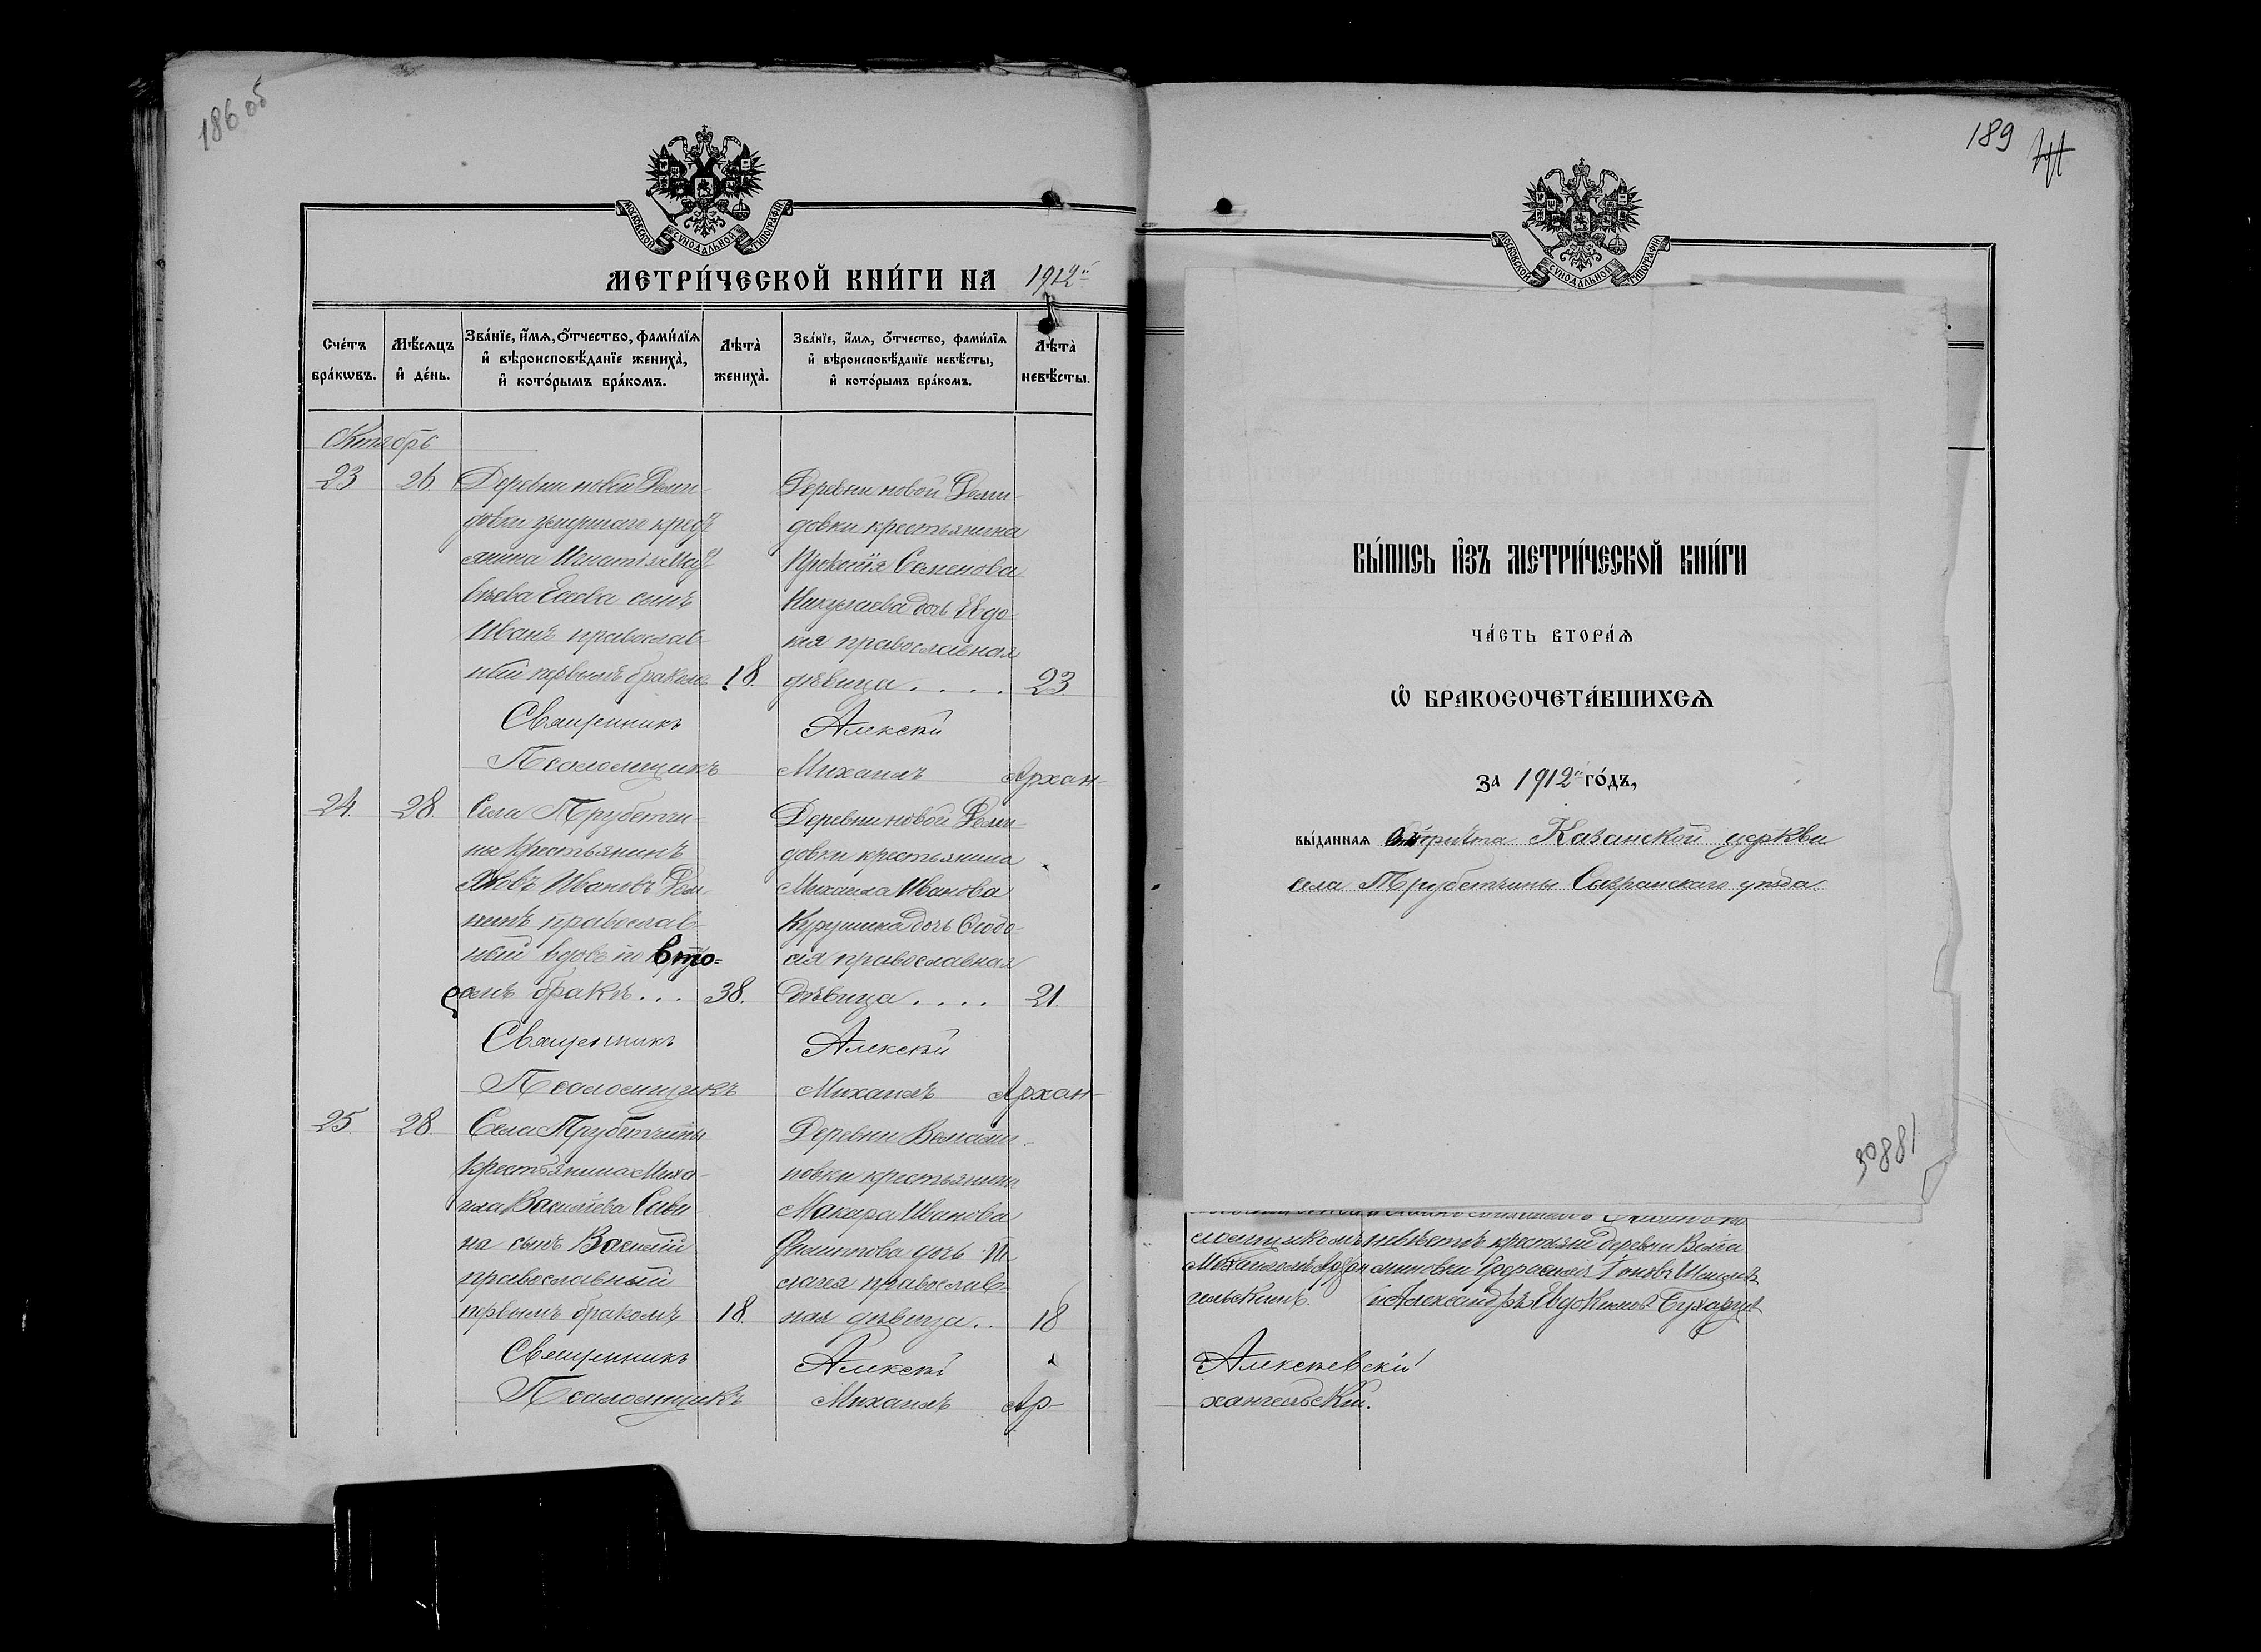 186 об
МОСКОВСКОЙ СѴНОДАЛЬНОЙ ТИПОГРАФІИ
МЕТРИ́ЧЕСКОЙ КНИ́ГИ НА 1912й
Сче́тъ бра́кѡвъ.
Мѣ́сѧцъ и҆ де́нь.
Зва́нїе, и҆́мѧ, ѻ҆́тчество, фами́лїѧ и҆ вѣроисповѣ́данїе жениха̀, и҆ кото́рымъ бра́комъ.
Лѣта̀ жениха̀.
Зва́нїе, и҆́мѧ, ѻ҆́тчество, фами́лїѧ и҆ вѣроисповѣ́данїе невѣ́сты, и҆ кото́рымъ бра́комъ.
Лѣта̀ невѣ́сты.
Октябрь
23 26. Деревни новой Деми-
довки умершаго крест
янина Игнатія Мат
вѣева Сына
Иванъ православ-
ный первымъ бракомъ 18.
Деревни новой Деми-
довки крестьянина
Прокопія Семенова
Никулаева дочь Евдо-
кія православная
дѣвица.... 23.
Священникъ Алексѣй
Псаломщикъ Михаилъ Архан-
24. 28. Села Трубетчи-
ны крестьянинъ
Яковъ Ивановъ
православ-
ный вдовъ по вто-
ромъ бракѣ... 38.
Деревни новой Деми-
довки крестьянина
Михаила Иванова
дочь Ѳеодо-
сія православная
дѣвица.... 21.
Священникъ Алексѣй
Псаломщикъ Михаилъ Архан-
25. 28. Села Трубетчины
крестьянина Миха-
ила Васильева Сави
на сынъ Василій
православный
первымъ бракомъ 18.
Деревни
новки крестьянина
Макара Иванова
Филиппова дочь
православ-
ная дѣвица.. 18
Священникъ Алексѣй
Псаломщикъ Михаилъ Ар-
189
МОСКОВСКОЙ СѴНОДАЛЬНОЙ ТИПОГРАФІИ
ВЫ́ПИСЬ И҆ЗЪ МЕТРИ́ЧЕСКОЙ КНИ́ГИ
ЧА́СТЬ ВТОРА́Ѧ
Ѡ҆ БРАКОСОЧЕТА́ВШИХСѦ
ЗА 1912й ГО́ДЪ,
вы́данная причта Казанской церкви
села Трубетчины Сызранскаго уѣзда.
30881
ломщикомъ невѣстѣ крестьяне деревни
Михаиломъ Архан
гельскимъ. и Александръ Евдокимовъ
Алексѣевскій
хангельскій.